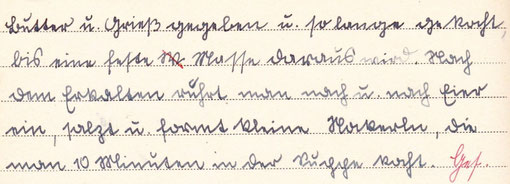 Butter u. Grieß gegeben u. so lange gekocht,
bis eine feste Masse daraus wird. Nach
dem Erkalten rührt man nach u. nach Eier
ein, salzt u. formt kleine Nakerln, die
man 10 Minuten in der Suppe kocht. Ges.